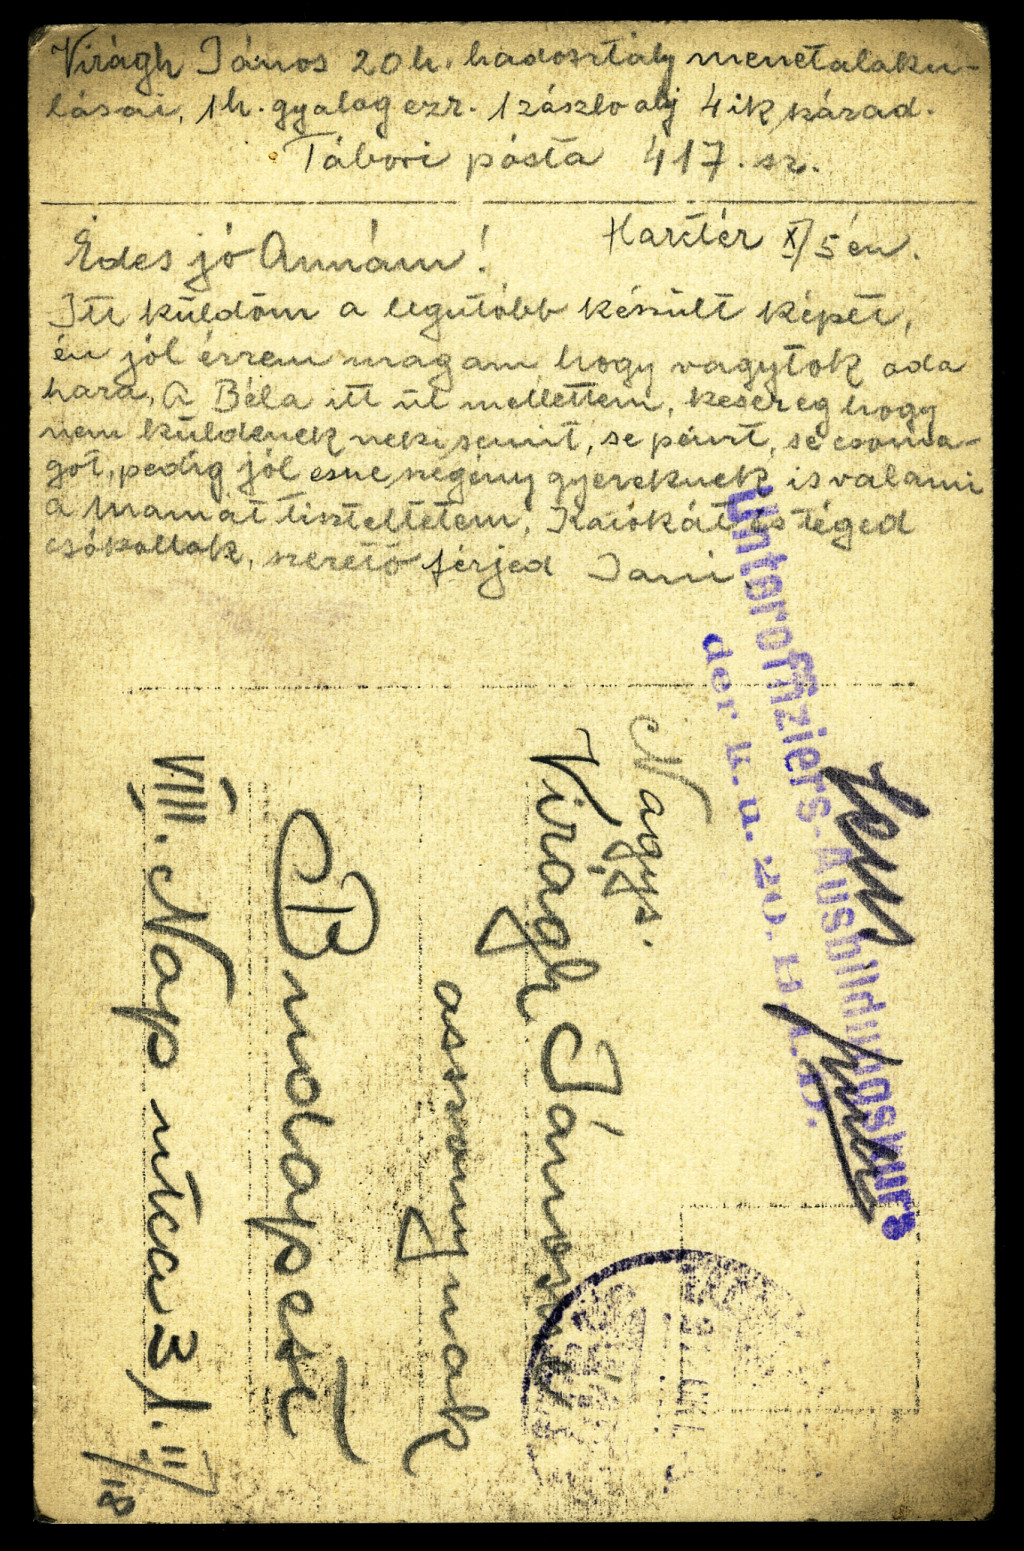 Virágh János 20 h. hadosztály menetalaku-
lásai, 1 h. gyalog ezr. 1 zászló alj 4 ik század.
Tábori pósta 417. sz.
Harctér X/5 én.
Édes jó Annám!
Itt küldöm a legutóbb készült képet,
én jól érzem magam, hogy vagytok oda
haza, A Béla itt ül mellettem, kesereg hogy
nem küldenek neki semit, se pénzt, se csoma-
got, pedig jól esne szegény gyereknek is valami
a mamát tiszteltetem, Katókát és téged
csókollak, szerető férjed Jani
Unteroffiziers-Ausbildungskurs
der k. u. 20. H.I.D.
Nagys.
Virágh Jánosné
asszonynak
Budapest
VIII. Nap utca 31. II/18